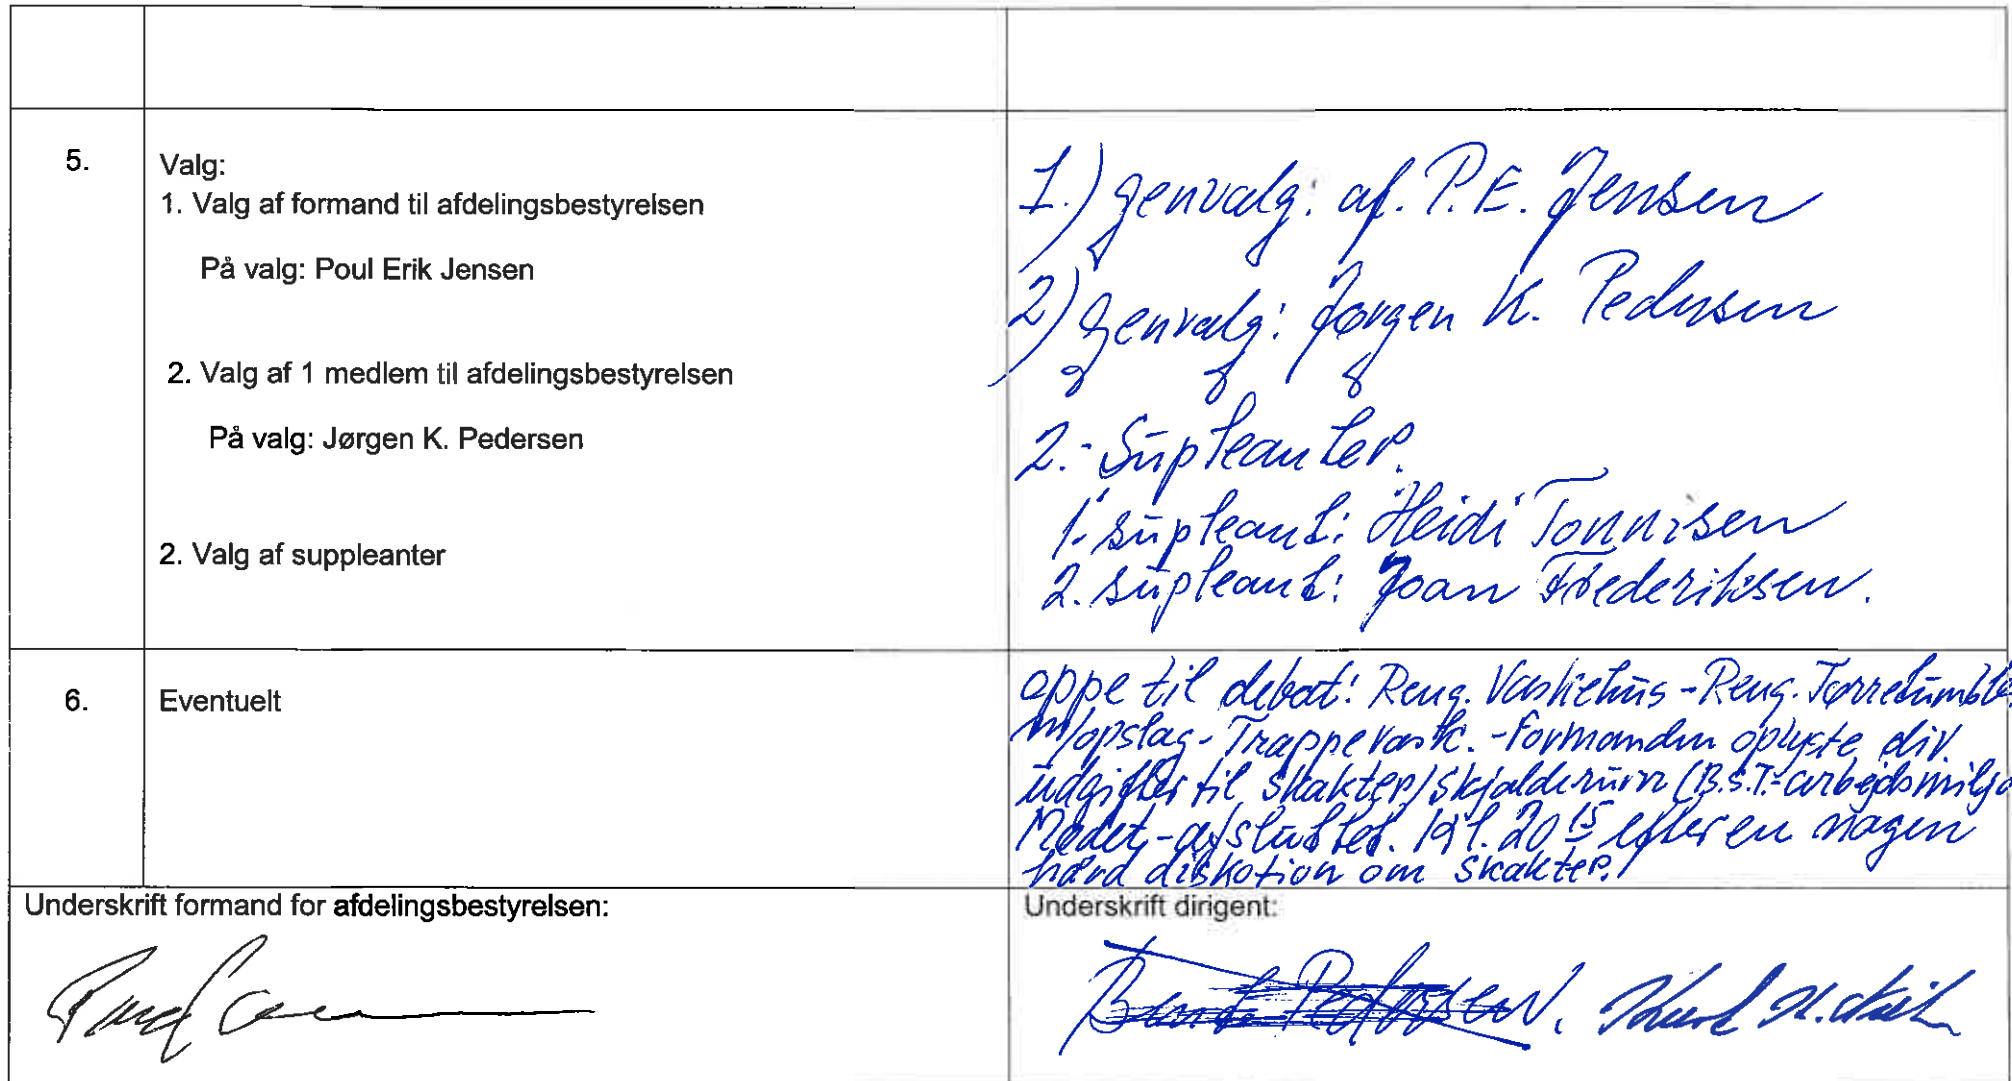 5.
Valg:
1. Valg af formand til afdelingsbestyrelsen
På valg: Poul Erik Jensen
2. Valg af 1 medlem til afdelingsbestyrelsen
På valg: Jørgen K. Pedersen
2. Valg af suppleanter
1.) genvalg: af. P.E. Jensen
2) genvalg: Jørgen K. Pedersen
2.- Supleanter.
1. supleant: Heidi Tonnisen
2. supleant: Joan Frederiksen.
6.
Eventuelt
oppe til debat: Reng. Vaskehus - Reng. Tørretumble
m/opslag - Trappevask. - Formanden oplyste div.
udgifter til skakter/skjalderum (B.S.T.- arbejdsmiljø
Mødet - afsluttet. Kl. 20 15 efter en nagen
hård diskotion om skakter.
Underskrift formand for afdelingsbestyrelsen:
Underskrift dirigent: